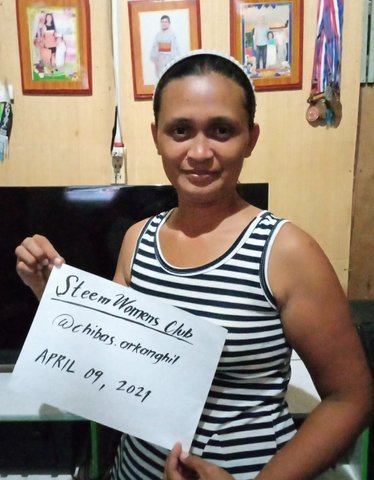 Steem Womens Club
@chibas.arkanghil
APRIL 09, 2021